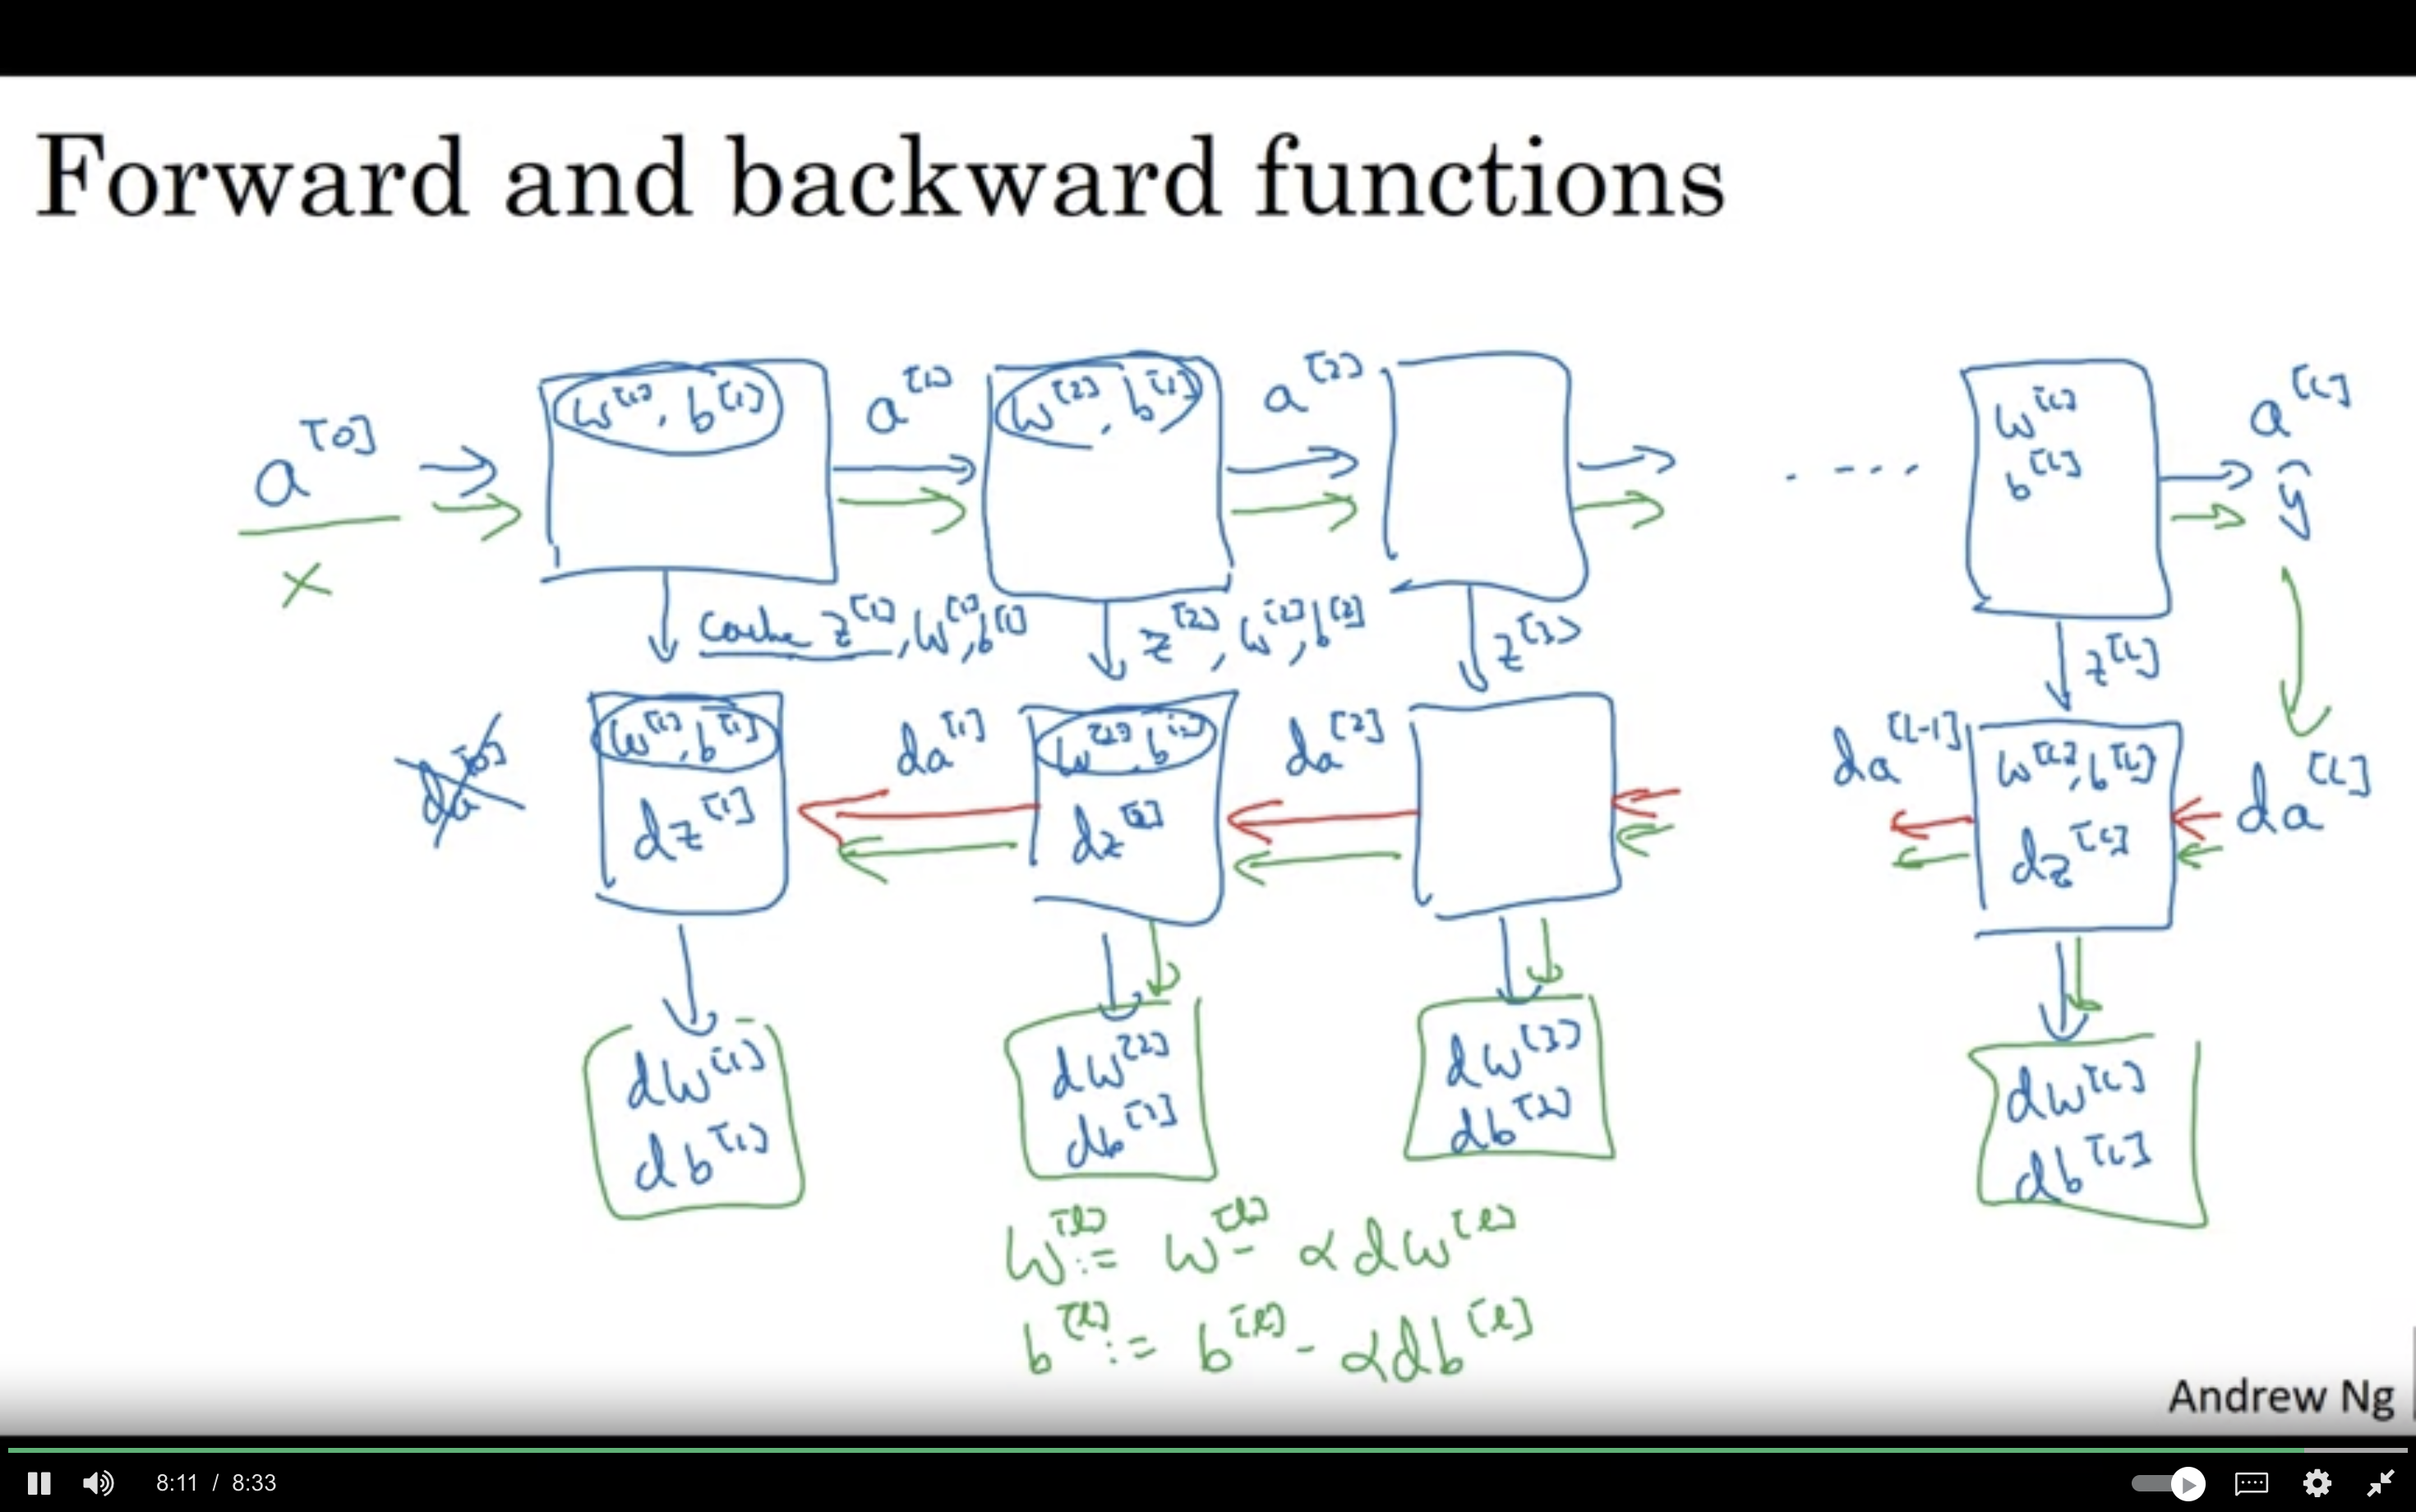 Forward and backward functions
a^[0] w^[1], b^[1] a^[1] w^[2], b^[2] a^[2] w^[L] a^[L]
b^[L] ŷ
x
cache z^[1], w^[1], b^[1] z^[2], w^[2], b^[2] z^[3] z^[L]
da^[0] w^[1], b^[1] da^[1] w^[2], b^[2] da^[2] da^[L-1] w^[L], b^[L] da^[L]
dz^[1] dz^[2] dz^[L]
dw^[1] dw^[2] dw^[3] dw^[L]
db^[1] db^[2] db^[3] db^[L]
w^[l] := w^[l] - αdw^[l]
b^[l] := b^[l] - αdb^[l]
Andrew Ng
8:11 / 8:33